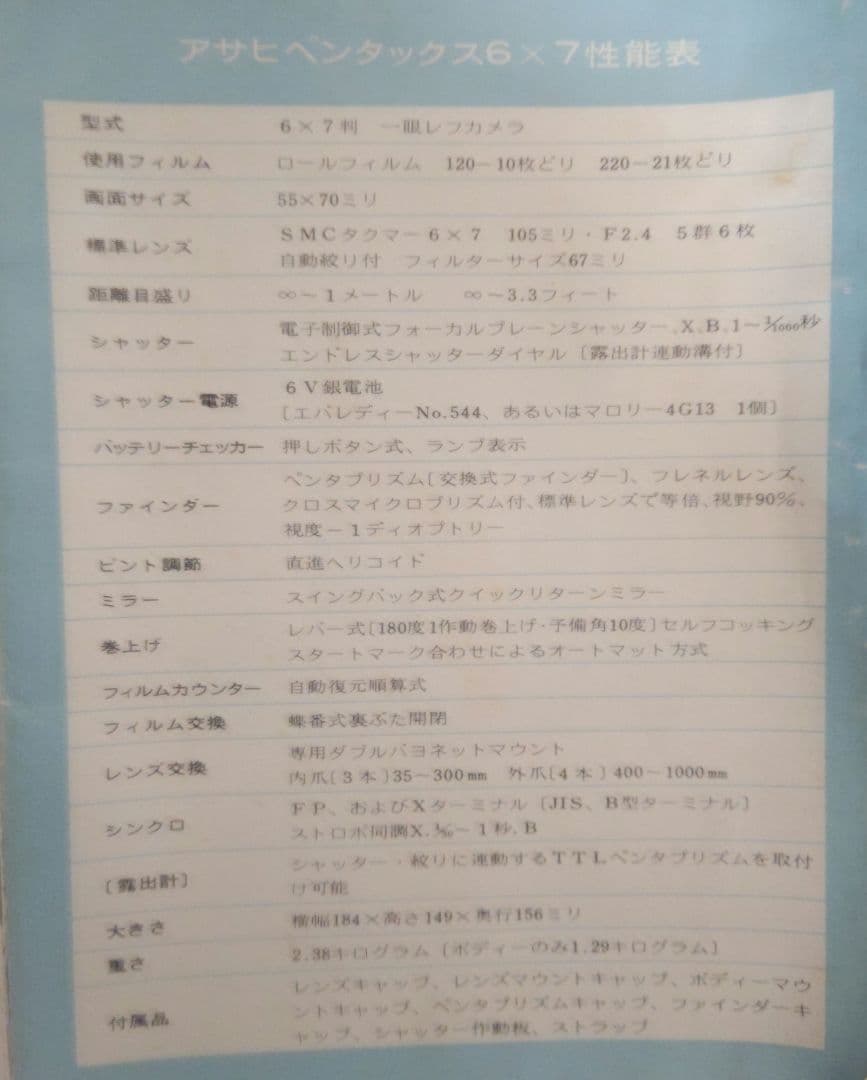 アサヒペンタックス6×7性能表
型式 6×7判 一眼レフカメラ
使用フィルム ロールフィルム 120－10枚どり 220－21枚どり
画面サイズ 55×70ミリ
標準レンズ SMCタクマー6×7 105ミリ・F2.4 5群6枚
自動絞り付 フィルターサイズ67ミリ
距離目盛り ∞～1メートル ∞～3.3フィート
シャッター 電子制御式フォーカルプレーンシャッター、X、B、1～1/1000秒
エンドレスシャッターダイヤル〔露出計連動溝付〕
シャッター電源 6V銀電池
〔エバレディーNo.544、あるいはマロリー4G13 1個〕
バッテリーチェッカー 押しボタン式、ランプ表示
ファインダー ペンタプリズム〔交換式ファインダー〕、フレネルレンズ、
クロスマイクロプリズム付、標準レンズで等倍、視野90%、
視度－1ディオプトリー
ピント調節 直進ヘリコイド
ミラー スイングバック式クイックリターンミラー
巻上げ レバー式〔180度1作動巻上げ・予備角10度〕セルフコッキング
スタートマーク合わせによるオートマット方式
フィルムカウンター 自動復元順算式
フィルム交換 蝶番式裏ぶた開閉
レンズ交換 専用ダブルバヨネットマウント
内爪〔3本〕35～300mm 外爪〔4本〕400～1000mm
シンクロ FP、およびXターミナル〔JIS、B型ターミナル〕
ストロボ同調X、1/30～1秒、B
〔露出計〕 シャッター・絞りに連動するTTLペンタプリズムを取付
け可能
大きさ 横幅184×高さ149×奥行156ミリ
重さ 2.38キログラム〔ボディーのみ1.29キログラム〕
付属品 レンズキャップ、レンズマウントキャップ、ボディーマウ
ントキャップ、ペンタプリズムキャップ、ファインダーキ
ャップ、シャッター作動板、ストラップ